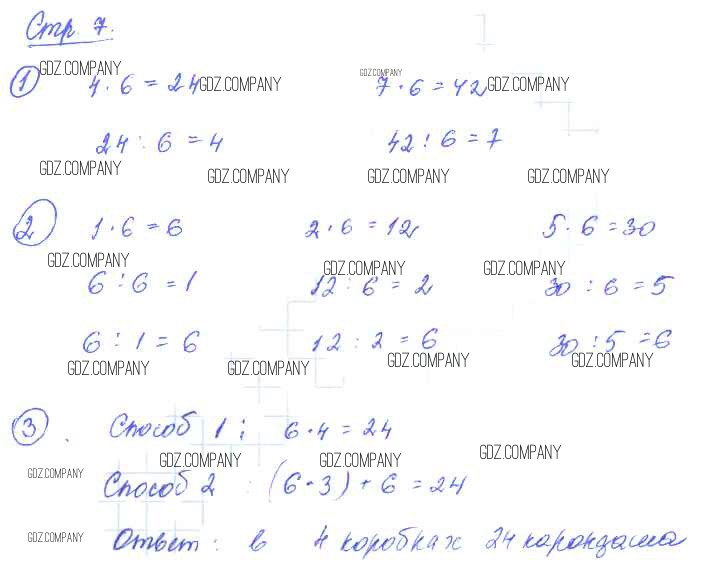 Стр. 7.
GDZ.COMPANY GDZ.COMPANY
1 4 · 6 = 24 GDZ.COMPANY 7 · 6 = 42 GDZ.COMPANY
24 : 6 = 4 42 : 6 = 7
GDZ.COMPANY GDZ.COMPANY GDZ.COMPANY GDZ.COMPANY
2 1 · 6 = 6 2 · 6 = 12 5 · 6 = 30
GDZ.COMPANY GDZ.COMPANY GDZ.COMPANY
6 : 6 = 1 12 : 6 = 2 30 : 6 = 5
6 : 1 = 6 12 : 2 = 6 30 : 5 = 6
GDZ.COMPANY GDZ.COMPANY GDZ.COMPANY GDZ.COMPANY
3. Способ 1 : 6 · 4 = 24
GDZ.COMPANY GDZ.COMPANY GDZ.COMPANY
GDZ.COMPANY Способ 2 : (6 · 3) + 6 = 24
GDZ.COMPANY Ответ : в 4 коробках 24 карандаша